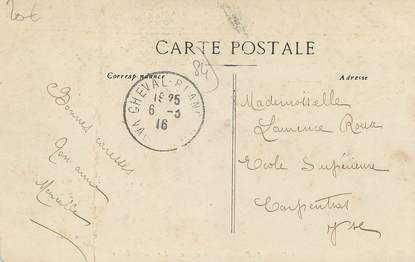 20€
CARTE POSTALE
84
Correspondance
Adresse
CHEVAL-BLANC
19 25
6 -5
16
VA
Bonnes caresses
Ton amie
Marcelle
Mademoiselle
Laurence Roux
Ecole Supérieure
Carpentras
Vse